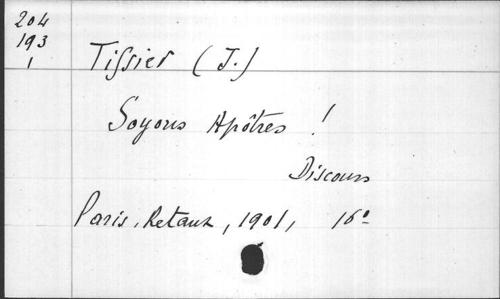 204
193
1
Tissier (J.)
Soyons Apôtres !
Discours
Paris, Retaux, 1901, 16º